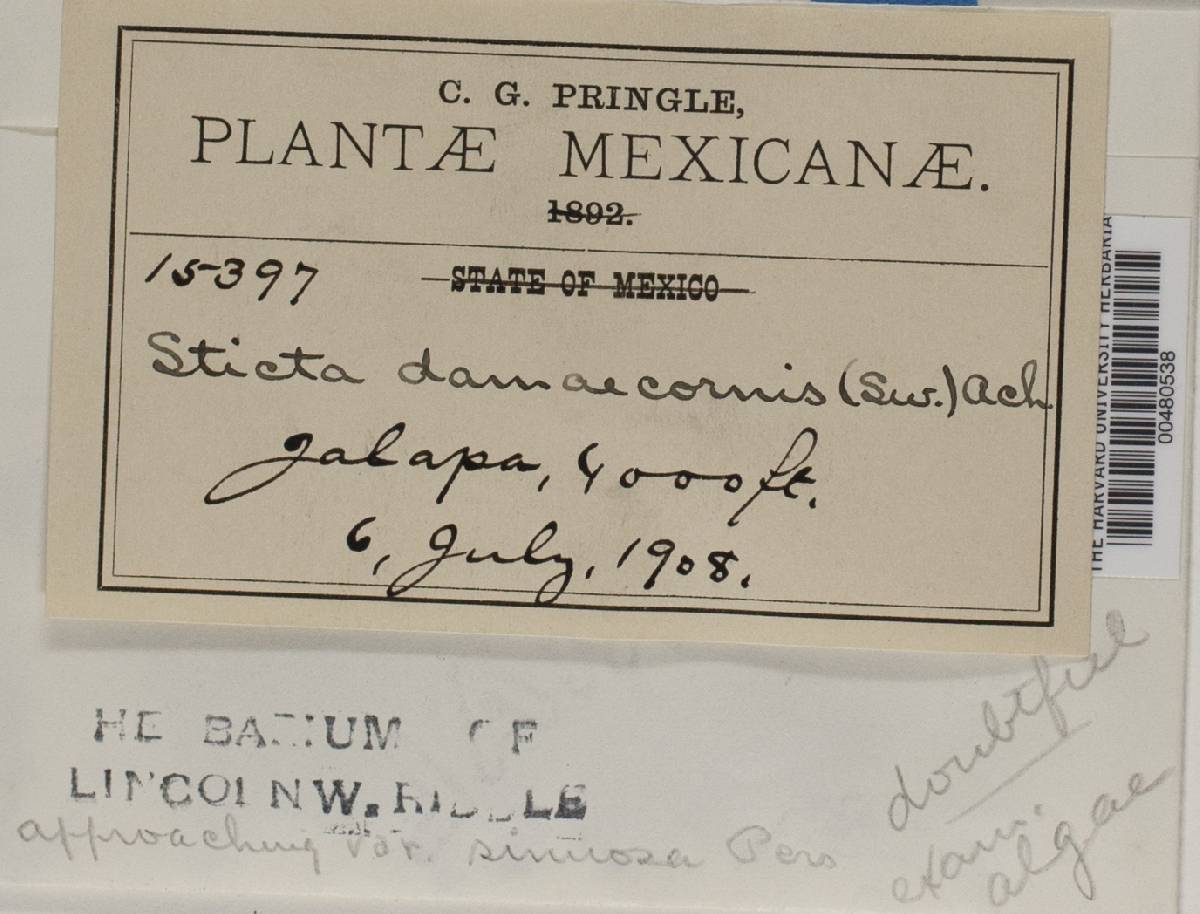 C. G. PRINGLE,
PLANTÆ MEXICANÆ.
1892.
15397 STATE OF MEXICO
Sticta damaecornis (Sw.) Ach.
Jalapa, 4000 ft.
6, July, 1908.
THE HARVARD UNIVERSITY HERBARIA
00480538
HE BARIUM OF
LINCOLN W. RIDDLE
approaching var. sinuosa Pers
doubtful
exam.
algae